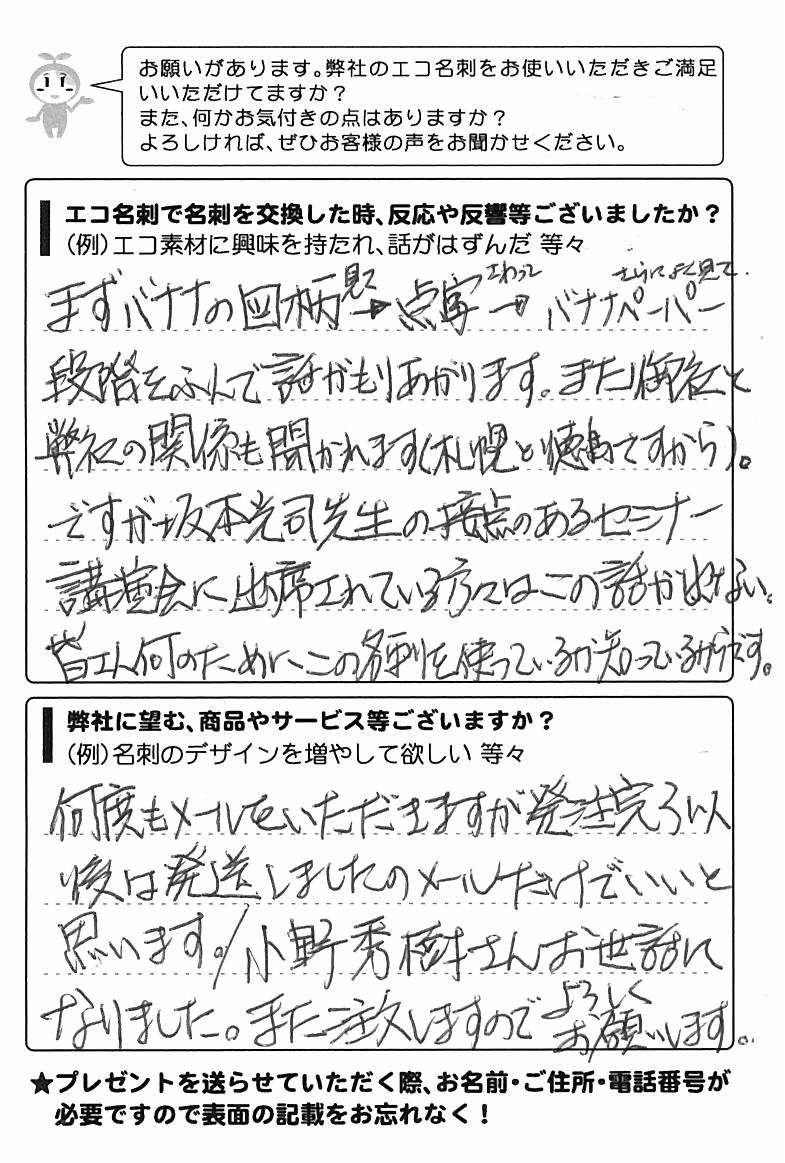 お願いがあります。弊社のエコ名刺をお使いいただきご満足
いいただけてますか？
また、何かお気付きの点はありますか？
よろしければ、ぜひお客様の声をお聞かせください。
エコ名刺で名刺を交換した時、反応や反響等ございましたか？
（例）エコ素材に興味を持たれ、話がはずんだ 等々
まずバナナの図柄見て→点字さわって→さらによく見て。バナナペーパー
段階をふんで話がもりあがります。また御社と
弊社の関係も聞かれます(札幌と徳島ですから)。
ですが坂本光司先生の接点のあるセミナー
講演会に出席されている方々はこの話が出ない。
皆さん何のためにこの名刺を使っているか知っているからです。
弊社に望む、商品やサービス等ございますか？
（例）名刺のデザインを増やして欲しい 等々
何度もメールをいただきますが発注完了以
後は発送しましたのメールだけでいいと
思います。/小野秀樹さんお世話に
なりました。また注文しますのでよろしくお願いします。
★プレゼントを送らせていただく際、お名前・ご住所・電話番号が
必要ですので表面の記載をお忘れなく！